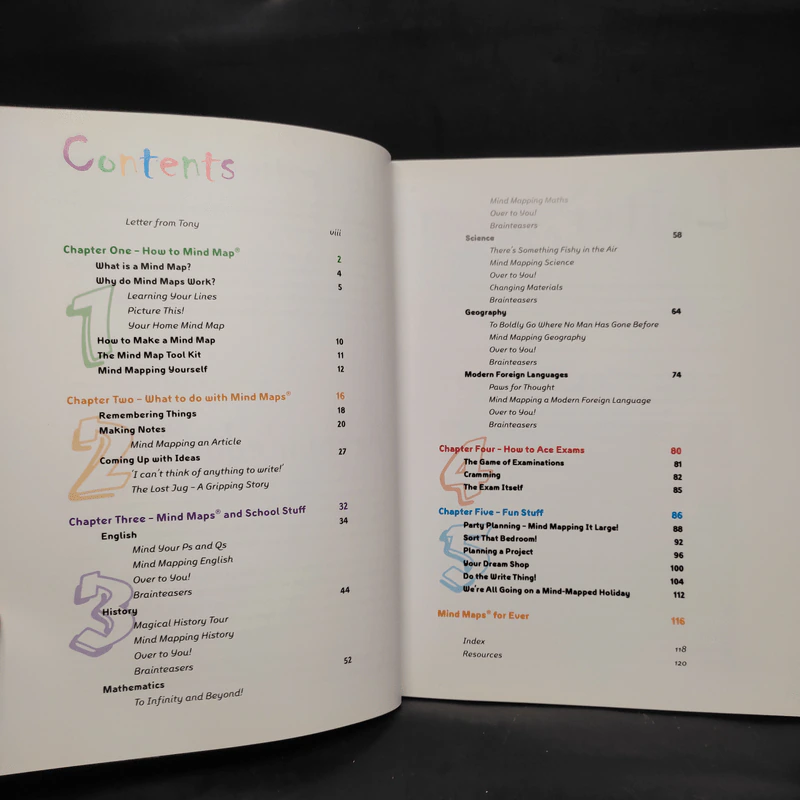 Contents
Letter from Tony viii
Chapter One – How to Mind Map® 2
What is a Mind Map? 4
Why do Mind Maps Work? 5
Learning Your Lines
Picture This!
Your Home Mind Map
How to Make a Mind Map 10
The Mind Map Tool Kit 11
Mind Mapping Yourself 12
1
Chapter Two – What to do with Mind Maps® 16
Remembering Things 18
Making Notes 20
Mind Mapping an Article
Coming Up with Ideas 27
'I can't think of anything to write!'
The Lost Jug – A Gripping Story
2
Chapter Three – Mind Maps® and School Stuff 32
English 34
Mind Your Ps and Qs
Mind Mapping English
Over to You!
Brainteasers
History 44
Magical History Tour
Mind Mapping History
Over to You!
Brainteasers
Mathematics 52
To Infinity and Beyond!
3
Mind Mapping Maths
Over to You!
Brainteasers
Science 58
There's Something Fishy in the Air
Mind Mapping Science
Over to You!
Changing Materials
Brainteasers
Geography 64
To Boldly Go Where No Man Has Gone Before
Mind Mapping Geography
Over to You!
Brainteasers
Modern Foreign Languages 74
Paws for Thought
Mind Mapping a Modern Foreign Language
Over to You!
Brainteasers
Chapter Four – How to Ace Exams 80
The Game of Examinations 81
Cramming 82
The Exam Itself 85
4
Chapter Five – Fun Stuff 86
Party Planning – Mind Mapping It Large! 88
Sort That Bedroom! 92
Planning a Project 96
Your Dream Shop 100
Do the Write Thing! 104
We're All Going on a Mind-Mapped Holiday 112
5
Mind Maps® for Ever 116
Index 118
Resources 120